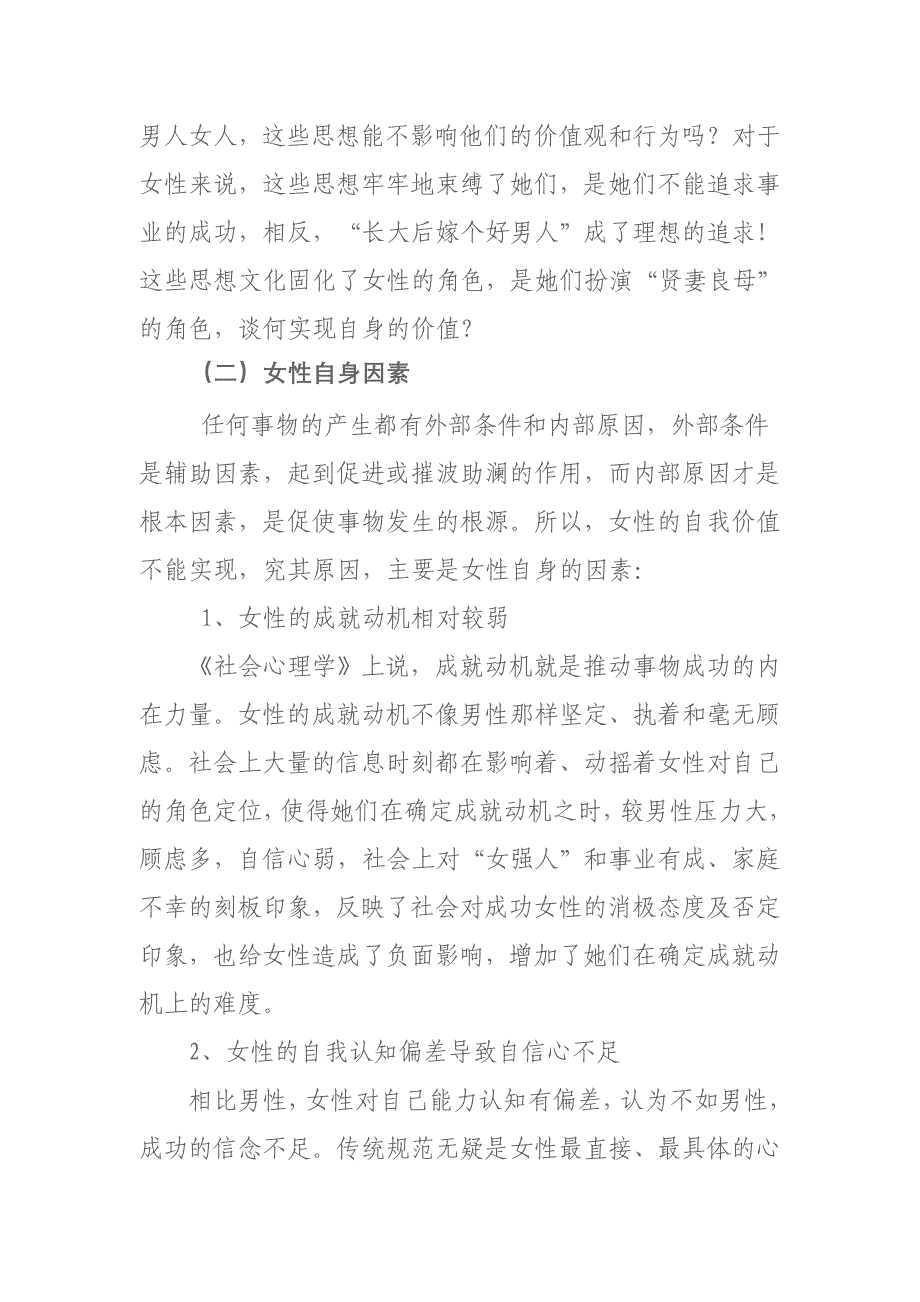 男人女人，这些思想能不影响他们的价值观和行为吗？对于
女性来说，这些思想牢牢地束缚了她们，是她们不能追求事
业的成功，相反，“长大后嫁个好男人”成了理想的追求！
这些思想文化固化了女性的角色，是她们扮演“贤妻良母”
的角色，谈何实现自身的价值？
（二）女性自身因素
任何事物的产生都有外部条件和内部原因，外部条件
是辅助因素，起到促进或摧波助澜的作用，而内部原因才是
根本因素，是促使事物发生的根源。所以，女性的自我价值
不能实现，究其原因，主要是女性自身的因素：
1、女性的成就动机相对较弱
《社会心理学》上说，成就动机就是推动事物成功的内
在力量。女性的成就动机不像男性那样坚定、执着和毫无顾
虑。社会上大量的信息时刻都在影响着、动摇着女性对自己
的角色定位，使得她们在确定成就动机之时，较男性压力大，
顾虑多，自信心弱，社会上对“女强人”和事业有成、家庭
不幸的刻板印象，反映了社会对成功女性的消极态度及否定
印象，也给女性造成了负面影响，增加了她们在确定成就动
机上的难度。
2、女性的自我认知偏差导致自信心不足
相比男性，女性对自己能力认知有偏差，认为不如男性，
成功的信念不足。传统规范无疑是女性最直接、最具体的心